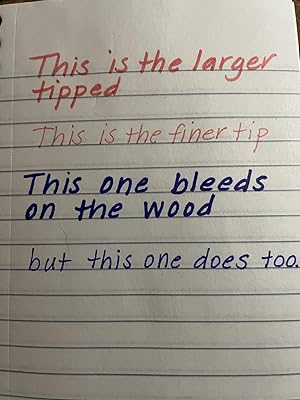 This is the larger
tipped
This is the finer tip
This one bleeds
on the wood
but this one does too.